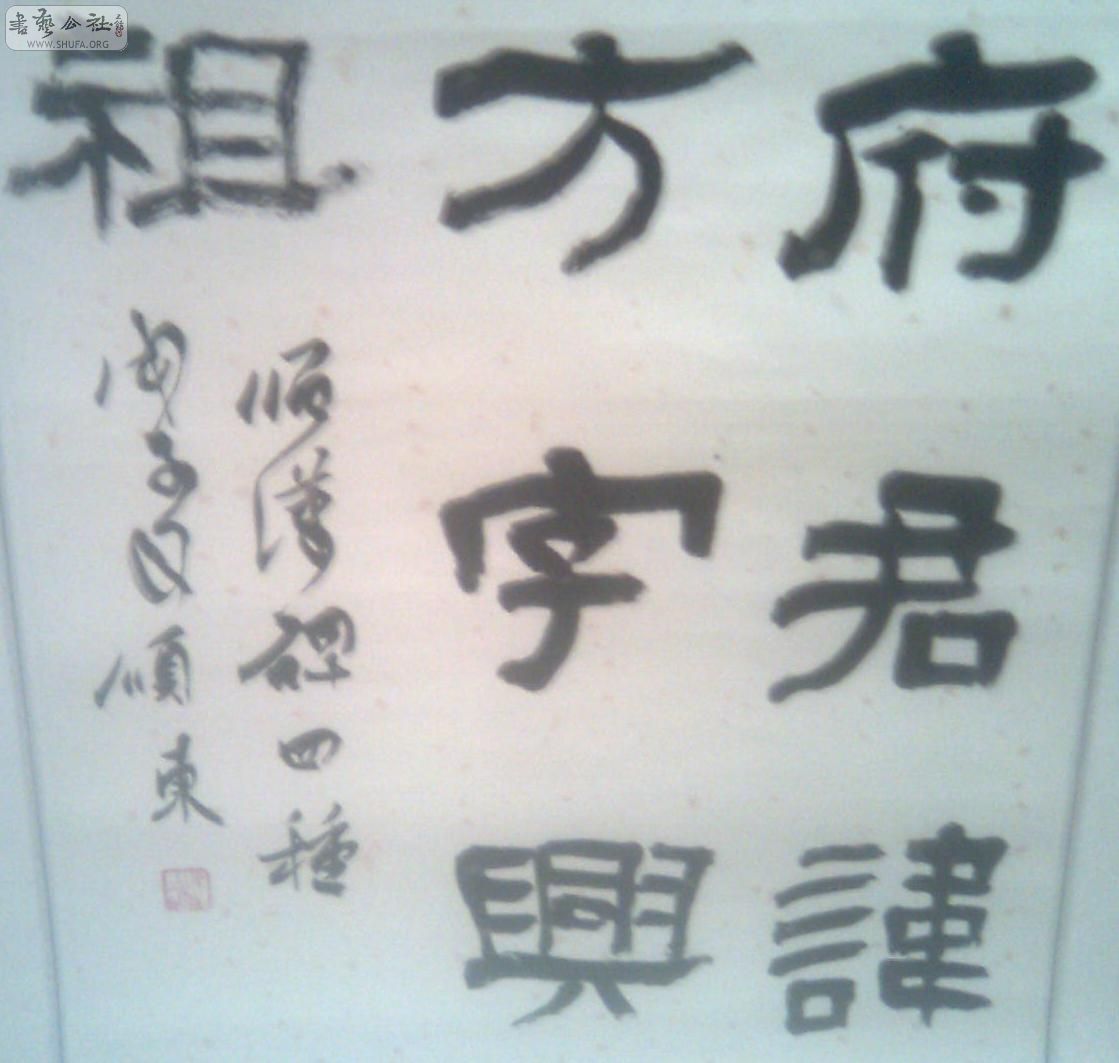 書藝公社
WWW.SHUFA.ORG
府君諱
方字興
祖
臨漢碑四種
東